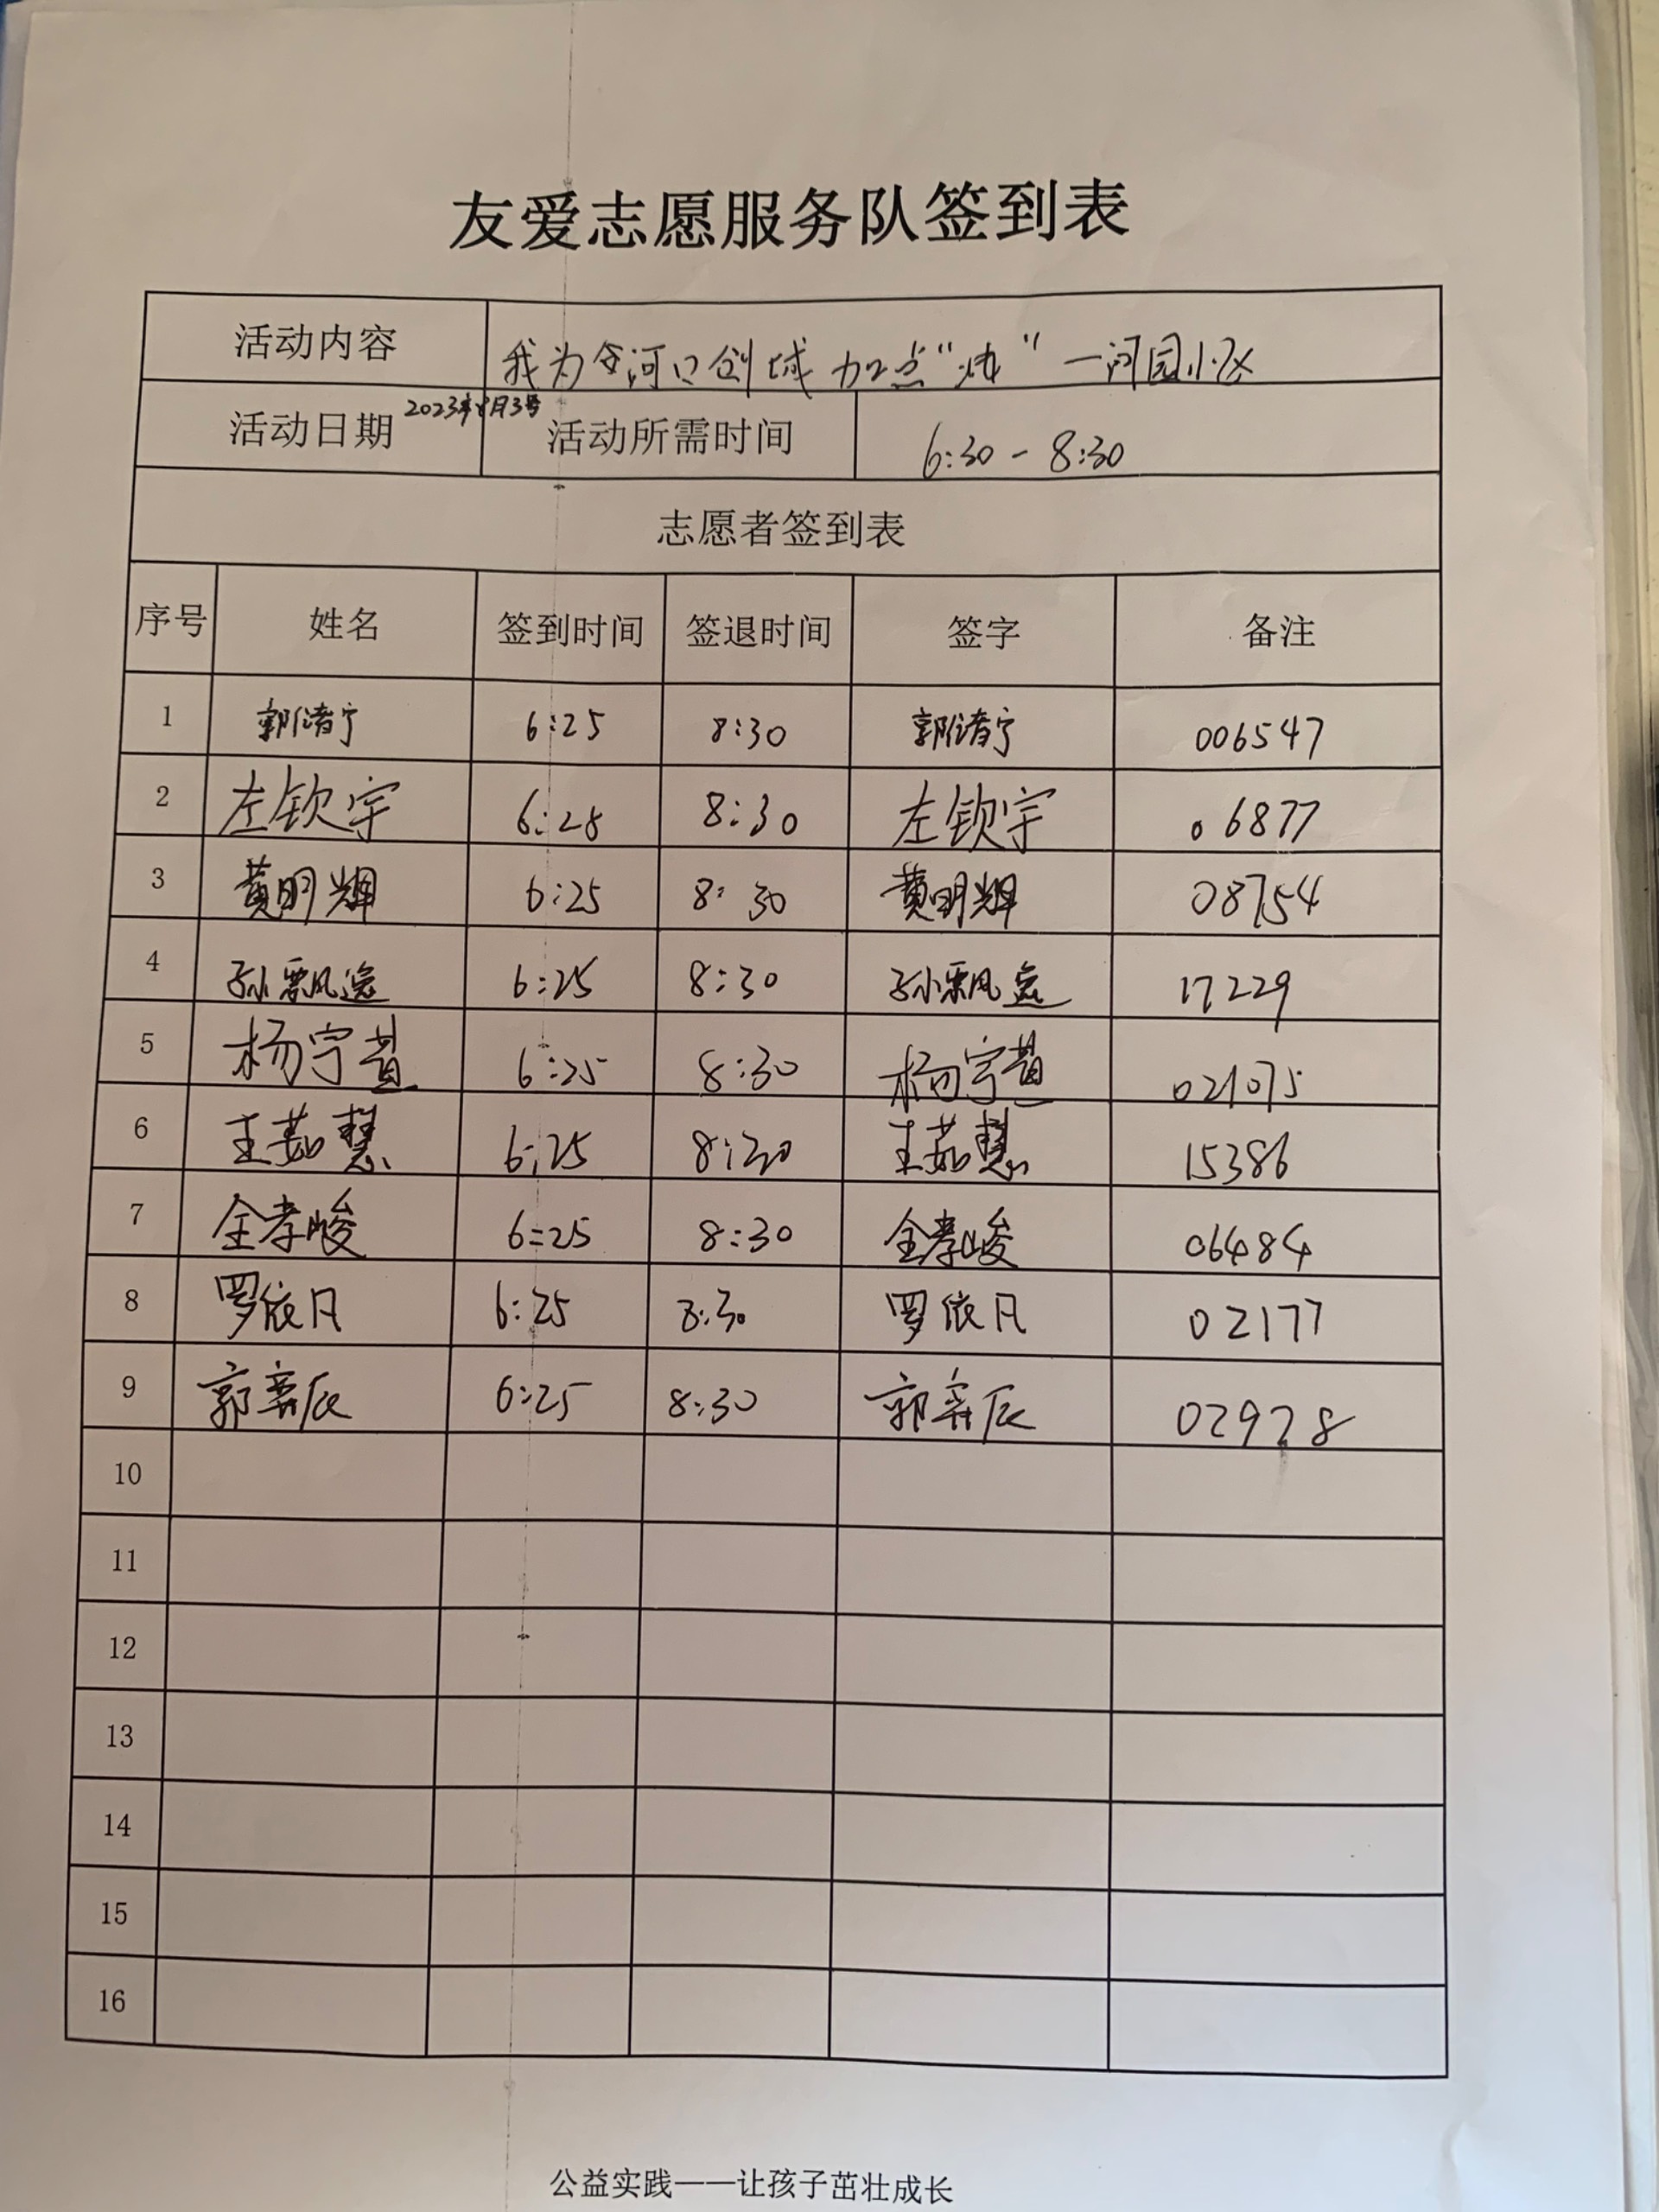 友爱志愿服务队签到表
活动内容 我为金河口创城加点"炫"一河园小区
活动日期 2023年8月3号 活动所需时间 6:30-8:30
志愿者签到表
序号 姓名 签到时间 签退时间 签字 备注
1 郭 宁 6:25 8:30 郭 宁 006547
2 左钦宇 6:25 8:30 左钦宇 06877
3 黄明辉 6:25 8:30 黄明辉 08754
4 孙飘逸 6:25 8:30 孙飘逸 17229
5 杨宇萱 6:25 8:30 杨宇萱 021075
6 王茹慧 6:25 8:30 王茹慧 15386
7 全孝峻 6:25 8:30 全孝峻 06484
8 罗依凡 6:25 8:30 罗依凡 02177
9 郭奕辰 6:25 8:30 郭奕辰 02928
10
11
12
13
14
15
16
公益实践——让孩子茁壮成长